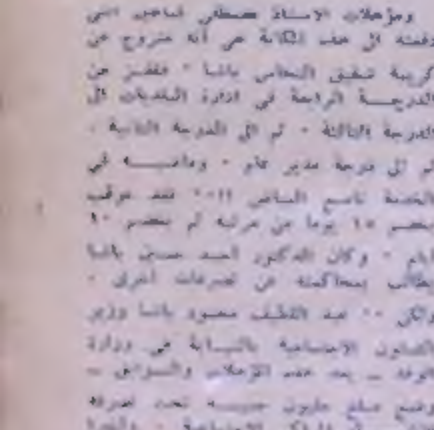 ومؤهلات الاستاذ مصطفى التى
رفعته الى هذه المكانة هى أنه متزوج من
كريمة شقيق النحاس باشا ٠ فقفز من
الدرجــة الرابعة فى ادارة البلديات الى
الدرجة الثالثة ٠ ثم الى الدرجة الثانية ٠
ثم الى درجة مدير عام ٠ وماضيــه فى
الخدمة ناصع البياض !! ٠٠ فقد عوقب
بخصم ١٥ يوما من مرتبه ثم بخصم ١٠
أيام ٠ وكان الدكتور أحمد حسين باشا
يطالب بمحاكمته عن تصرفات أخرى ٠
ولكن ٠٠ عبد اللطيف محمود باشا وزير
الشئون الاجتماعية بالنيــابة فى وزارة
الوفد ــ بعد هذه المؤهلات والسوابق ــ
وضع مبلغ مليون جنيــه تحت تصرفه
الاجتماعية